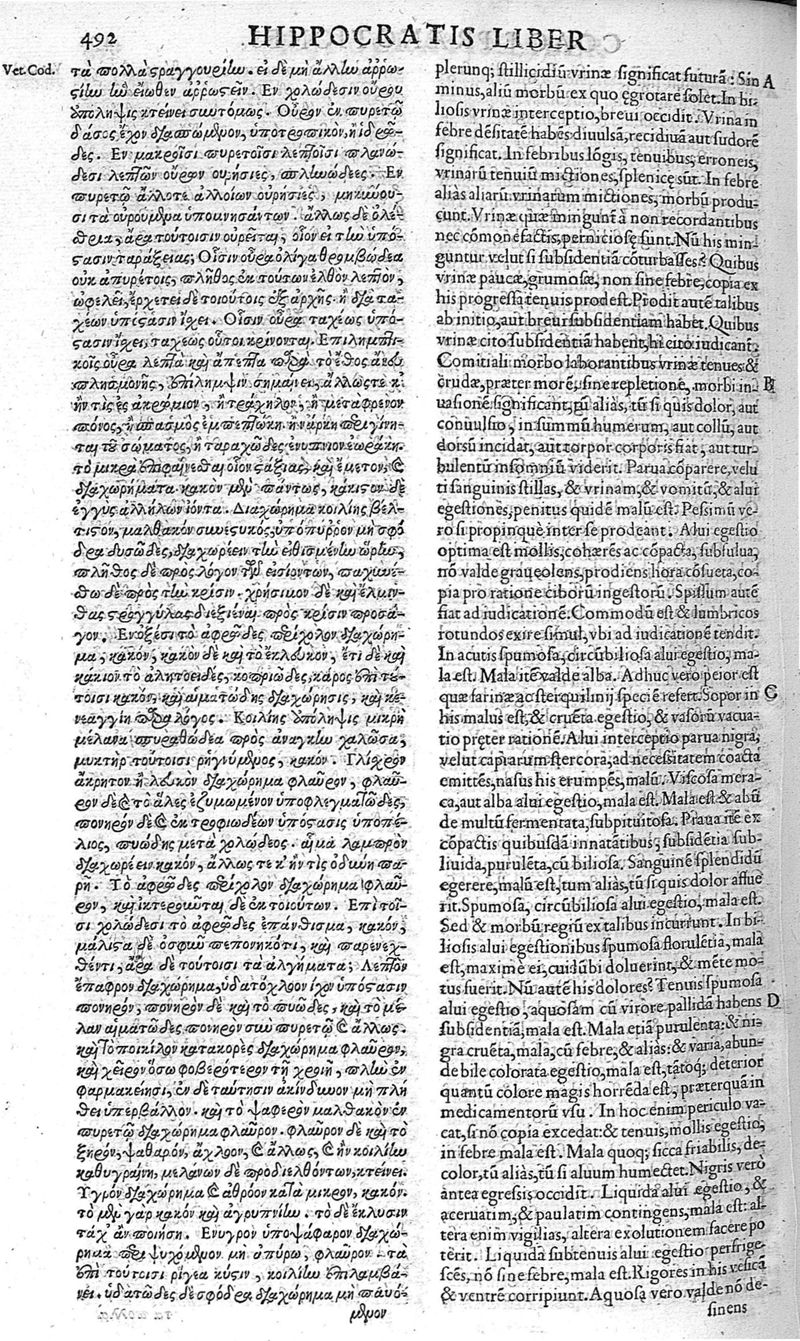 492
HIPPOCRATIS LIBER
Vet. Cod.
τὰ πολλὰ στραγγουρίην. εἰ δὲ μὴ ἄλλην ἀῤῥω-
στίην ἣν εἴωθεν ἀῤῥωστεῖν. Ἐν χολώδεσιν οὔρου
ὑπόληψις κτείνει συντόμως. Οὖρον ἐν πυρετῷ
δάσος ἔχον διασπώμενον, ὑποτροπικὸν, ἢ ἱδρῶ-
δες. Ἐν μακροῖσι πυρετοῖσι λεπτοῖσι πλανώ-
δεσι λεπτῶν οὔρων οὐρήσιες, σπληνώδεες. Ἐν
πυρετῷ ἄλλοτε ἀλλοίων οὐρήσιες, μηκύνου-
σι τὰ οὐρούμενα ὑπομνησάντων. ἄλλως δὲ ὀλέ-
θρια, ἆρα τούτοισιν οὐρεῖται, οἷον εἰ τὴν ὑπό-
στασιν ταράξειας; Οἷσιν οὖρα ὀλίγα θρομβώδεα
οὐκ ἀπυρέτοις, πλῆθος ἐκ τούτων ἐλθὸν λεπτὸν,
ὠφελεῖ, ἔρχεται δὲ τοιούτοις ἐξ ἀρχῆς ἢ διὰ τα-
χέων ὑπόστασιν ἴσχει. Οἷσιν οὖρα ταχέως ὑπό-
στασιν ἴσχει, ταχέως οὗτοι κρίνονται. Ἐπιλημπτι-
κοῖς οὖρα λεπτὰ καὶ ἄπεπτα παρὰ τὸ ἔθος ἄνευ
πλησμονῆς, ἐπίλημψιν σημαίνει, ἄλλως τε κἢ
ἤν τις ἐς ἀκρώμιον, ἢ τράχηλον, ἢ μετάφρενον
πόνος, ἢ σπασμὸς ἐμπεπτώκῃ. ἢ νάρκη περιγίνη-
ται τοῦ σώματος, ἢ ταραχῶδες ἐνύπνιον ἑωράκῃ.
τὸ μικρὰ ἐπιφαίνεσθαι οἷον στάξιας, καὶ ἔμετον, καὶ
διαχωρήματα. κακὸν μὲν πάντως, κάκιστον δὲ
ἐγγὺς ἀλλήλων ἰόντα. Διαχώρημα κοιλίης βέλ-
τιστον, μαλθακὸν συνεστυκὸς, ὑπόπυῤῥον μὴ σφό
δρα δυσῶδες, διαχωρέειν τὴν εἰθισμένην ὥρην,
πλῆθος δὲ πρὸς λόγον τῶν εἰσιόντων, παχυνέ-
σθω δὲ πρὸς τὴν κρίσιν. χρήσιμον δὲ καὶ ἕλμιν-
θας στρογγύλας διεξιέναι πρὸς κρίσιν προσά-
γον. Ἐν ὀξέσι τὸ ἀφρῶδες περίχολον διαχώρη-
μα, κακὸν, κακὸν δὲ καὶ τὸ ἔκλευκον, ἔτι δὲ καὶ
κάκιον τὸ ἀλητοειδὲς, κοπριῶδες, κάρος ἐπὶ τού-
τοισι κακὸν, καὶ αἱματώδης διαχώρησις, καὶ κε-
νεαγγίη παρὰ λόγος. Κοιλίης ὑπόληψις μικρὴ
μέλανα σπυραθώδεα πρὸς ἀνάγκην χαλῶσα,
μυκτὴρ τούτοισι ῥηγνύμενος, κακόν. Γλίσχρον
ἄκρητον ἢ λευκὸν διαχώρημα φλαῦρον, φλαῦ-
ρον δὲ καὶ τὸ ἅλες ἐζυμωμένον ὑποφλεγματῶδες,
πονηρὸν δὲ καὶ ἐκ τροφιωδέων ὑπόστασις ὑποπέ-
λιος, πυώδης μετὰ χολώδεος. αἷμα λαμπρὸν
διαχωρέειν κακὸν, ἄλλως τε κ' ἤν τις ὀδύνη πα-
ρῇ. Τὸ ἀφρῶδες περίχολον διαχώρημα φλαῦ-
ρον, καὶ ἰκτεριοῦται δὲ ἐκ τοιούτων. Ἐπὶ τοῖ-
σι χολώδεσι τὸ ἀφρῶδες ἐπάνθισμα, κακὸν,
μάλιστα δὲ ὀσφὺν πεπονηκότι, καὶ παρενεχ-
θέντι, ἆρα δὲ τούτοισι τὰ ἀλγήματα; Λεπτὸν
ἔπαφρον διαχώρημα, ὑδατόχλοον ἔχον ὑπόστασιν
πονηρὸν, πονηρὸν δὲ καὶ τὸ πυῶδες, καὶ τὸ μέ-
λαν αἱματῶδες πονηρὸν σὺν πυρετῷ καὶ ἄλλως.
καὶ τὸ ποικίλον κατακορὲς διαχώρημα φλαῦρον,
καὶ χεῖρον ὅσῳ φοβερώτερον τῇ χροιῇ, πλὴν ἐν
φαρμακείῃσι, ἐν δὲ ταύτησιν ἀκίνδυνον μὴ πλή
θει ὑπερβάλλον. καὶ τὸ ψαφερὸν μαλθακὸν ἐν
πυρετῷ διαχώρημα φλαῦρον. φλαῦρον δὲ καὶ τὸ
ξηρὸν, ψαθαρὸν, ἄχλοον, καὶ ἄλλως, καὶ ἢν κοιλίην
καθυγραίνῃ, μελάνων δὲ προδιελθόντων, κτείνει.
Ὑγρὸν διαχώρημα καὶ ἀθρόον κατὰ μικρὸν, κακόν.
τὸ μὲν γὰρ κακὸν καὶ ἀγρυπνίην. τὸ δὲ ἔκλυσιν
τάχ' ἂν ποιήσῃ. Ἔνυγρον ὑποψάφαρον διαχώ-
ρημα περιψυχόμενον μὴ ἀπύρῳ, φλαῦρον. τὰ
ἐπὶ τούτοισι ῥίγεα κύστιν, κοιλίην ἐπιλαμβά-
νει. ὑδατῶδες δὲ σφόδρα διαχώρημα μὴ παυό-
μενον
plerunq; stillicidiū vrinæ significat futurā: Sin A
minus, aliū morbū ex quo ęgrotare solet. In bi-
liosis vrinæ interceptio, breui occidit. Vrina in
febre dēsitatē habēs diuulsā, recidiuā aut sudorē
significat. In febribus lōgis, tenuibus, erroneis,
vrinarū tenuiū mictiones, splenicę sūt. In febre
aliàs aliarū vrinarum mictiones, morbū produ-
cunt. Vrinæ quæ mingunt à non recordantibus
nec cōmonefactis, perniciosę sunt. Nū his min-
guntur velut si subsidentiā cōturbasses? Quibus
vrinæ paucæ, grumosæ, non sine febre, copia ex
his progressa tenuis prodest. Prodit autē talibus
ab initio, aut breui subsidentiam habet. Quibus
vrinæ cito subsidentiā habent, hi cito iudicant.
Comitiali morbo laborantibus vrinæ tenues &
crudæ, præter morē, sine repletione, morbi in- B
uasionē significant, tū aliàs, tū si quis dolor, aut
conuulsio, in summū humerum, aut collū, aut
dorsū incidat, aut torpor corporis fiat, aut tur-
bulentū insomniū viderit. Parua cōparere, velu
ti sanguinis stillas, & vrinam, & vomitū, & alui
egestiones, penitus quidē malū est. Pessimū ve-
ro si propinquè inter se prodeant. Alui egestio
optima est mollis, cohærēs ac cōpacta, subfulua,
nō valde graueolens, prodiens hora cōsueta, co-
pia pro ratione ciborū ingestorū. Spissum autē
fiat ad iudicationē. Commodū est & lumbricos
rotundos exire simul, vbi ad iudicationē tendit.
In acutis spumosa, circūbiliosa alui egestio, ma-
la est. Mala itē valde alba. Adhuc vero peior est
quæ farinæ ac sterquilinij speciē refert. Sopor in C
his malus est, & cruēta egestio, & vasorū vacua-
tio pręter rationē. Alui interceptio parua nigra,
velut caprarum stercora, ad necessitatem coacta
emittēs, nasus his erumpēs, malū. Viscosa mera-
ca, aut alba alui egestio, mala est. Mala est & abū
de multū fermentata, subpituitosa. Praua itē ex
cōpactis quibusdā innatātibus, subsidētia sub-
liuida, purulēta, cū biliosa. Sanguinē splendidū
egerere, malū est, tum aliàs, tū si quis dolor affue
rit. Spumosa, circūbiliosa alui egestio, mala est.
Sed & morbū regiū ex talibus incurrunt. In bi-
liosis alui egestionibus spumosa florulētia, mala
est, maximè ei, cui lūbi doluerint, & mēte mo-
tus fuerit. Nū autē his dolores? Tenuis spumosa
alui egestio, aquosam cū virore pallidā habens D
subsidentiā, mala est. Mala etiā purulenta: & ni-
gra cruēta, mala, cū febre, & aliàs: & varia, abun-
de bile colorata egestio, mala est, tātoq; deterior
quantū colore magis horrēda est, præterquā in
medicamentorū vsu. In hoc enim periculo va-
cat, si nō copia excedat: & tenuis, mollis egestio,
in febre mala est. Mala quoq; sicca friabilis, de-
color, tū aliàs, tū si aluum humectet. Nigris verò
ántea egressis occidit. Liquida alui egestio, &
aceruatim, & paulatim contingens, mala est: al-
tera enim vigilias, altera exolutionem facere po
terit. Liquida subtenuis alui egestio perfrige-
scēs, nō sine febre, mala est. Rigores in his vesicā
& ventrē corripiunt. Aquosa vero valde nō de-
sinens